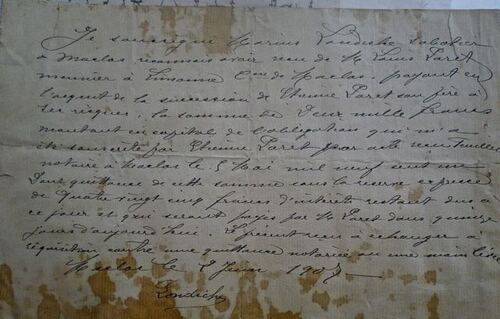 Je soussigné Marius Londiche sabotier
à Maclas reconnais avoir reçu de M Louis Paret
meunier à Limonne Cne de Maclas, payant en
l'acquit de la succession de Etienne Paret son père à
ses risques, la somme de Deux mille francs
montant en capital de l'obligation qui m'a
été souscrite par Etienne Paret par acte reçu
notaire à Maclas le 5 Mai mil neuf cent un
Dont quittance de cette somme sous la réserve expresse
de quatre vingt cinq francs d'intérêts restant dus à
ce jour et qui seront payés par M Paret dans quinze
jours d'aujourd'hui. Le présent reçu à échanger à
réquisition contre une quittance notariée ou une main levée
Maclas le 2 190
Londiche